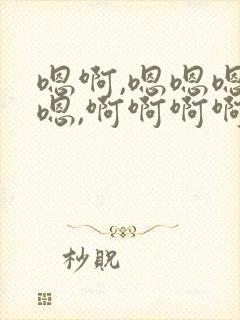 嗯啊,嗯嗯嗯
嗯,啊啊啊啊
杪貺